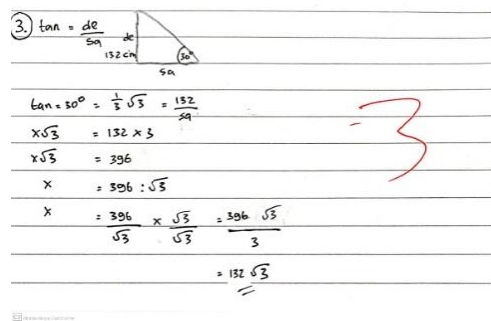 3. tan = de/sa
de
132 cm
30°
sa
tan = 30° = 1/3 √3 = 132/sa
x√3 = 132 × 3
x√3 = 396
x = 396 : √3
x = 396/√3 × √3/√3 = 396 √3/3
= 132 √3
-3